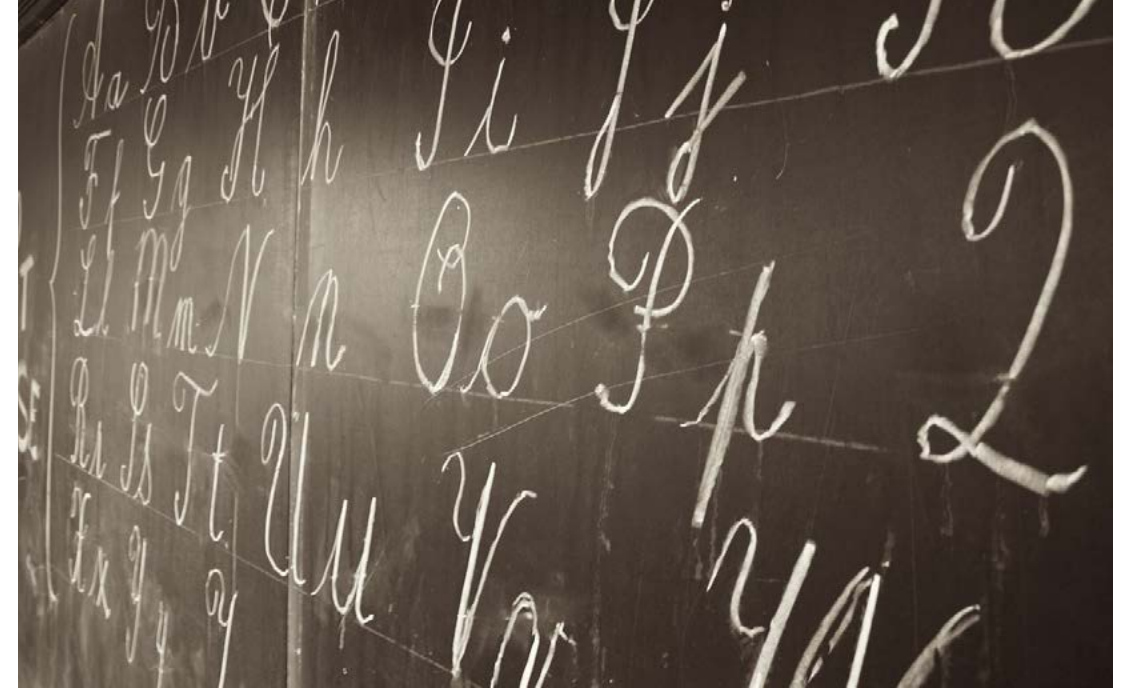 Aa B
Ff Gg Hh Ii Jj
Ll Mm Nn Oo Pp Q
Rr Ss Tt Uu Vv
Xx Yy